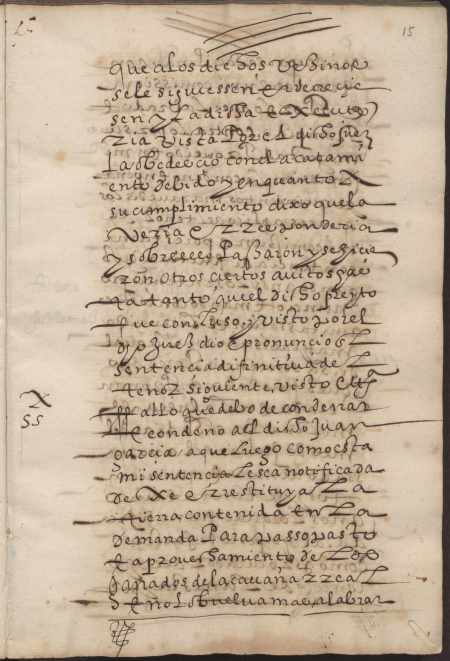 15
que a los dichos vezinos
se le siguiessen e rrececie
sen y la dicha executo
ria vista por el dicho juez
la obedecio con el acatami
ento debido y en quanto a
su cumplimiento dixo que la
veria e rresponderia
y sobre ello passaron y se hizie
ron otros ciertos autos
tanto quel dicho pleyto
fue concluso y visto por el
dho juez dio e pronuncio
sentencia difinitiva de
tenor siguiente, visto etta
ffallo que debo de condenar
e condeno al dicho juan
garcia a que luego como esta
mi sentencia le sea notificada
dexe e rrestituya la
tierra contenida en la
demanda para passo pasto
e aprovechamiento de los
ganados de la cavaña rreal
e no lo buelva mas a labrar
SS